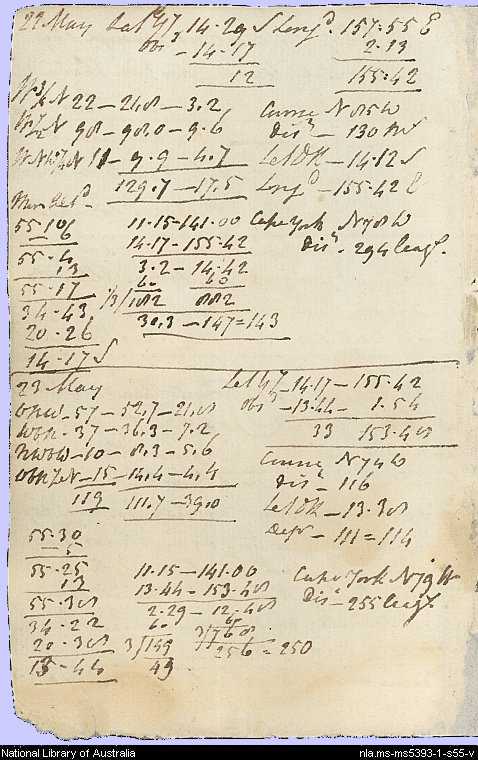 22 May Lat 47, 14.29 S Longd. 157.55 E
obs - 14.17 2.13
12 155.42
N 22 - 21.8 - 3.2 Course N 85 W
N 98 - 98.0 - 9.6 Dis - 130 Ms
11 - 9.9 - 4.7 Lat DR - 14.12 S
129.7 - 17.5 Longd - 155.42 E
55.10 11.15 - 141.00 Cape York N 78 W
6 14.17 - 155.42 Dis - 294 leags.
55.4 3.2 - 14.42
13 60 60
55.17 1/3/182 882
34.43 30.3 - 147 = 143
20.26
14.17 S
23 May Lat 47 - 14.17 - 155.42
WNW - 57 - 52.7 - 21.8 obs - 13.44 - 1.54
WbN - 37 - 36.3 - 7.2 33 153.48
NWbW - 10 - 8.3 - 5.6 Course N 74 W
- 15 - 14.4 - 4.4 Dis - 116
119 111.7 - 39.0 Lat DR - 13.38
Depr - 111 = 114
55.30
5
55.25 11.15 - 141.00 Cape York N 79 W
13 13.44 - 153.48 Dis - 255 leags.
55.38 2.29 - 12.48
34.22 60 60
20.38 3/149 3/768
13.44 49 256 = 250
National Library of Australia nla.ms-ms5393-1-s55-v